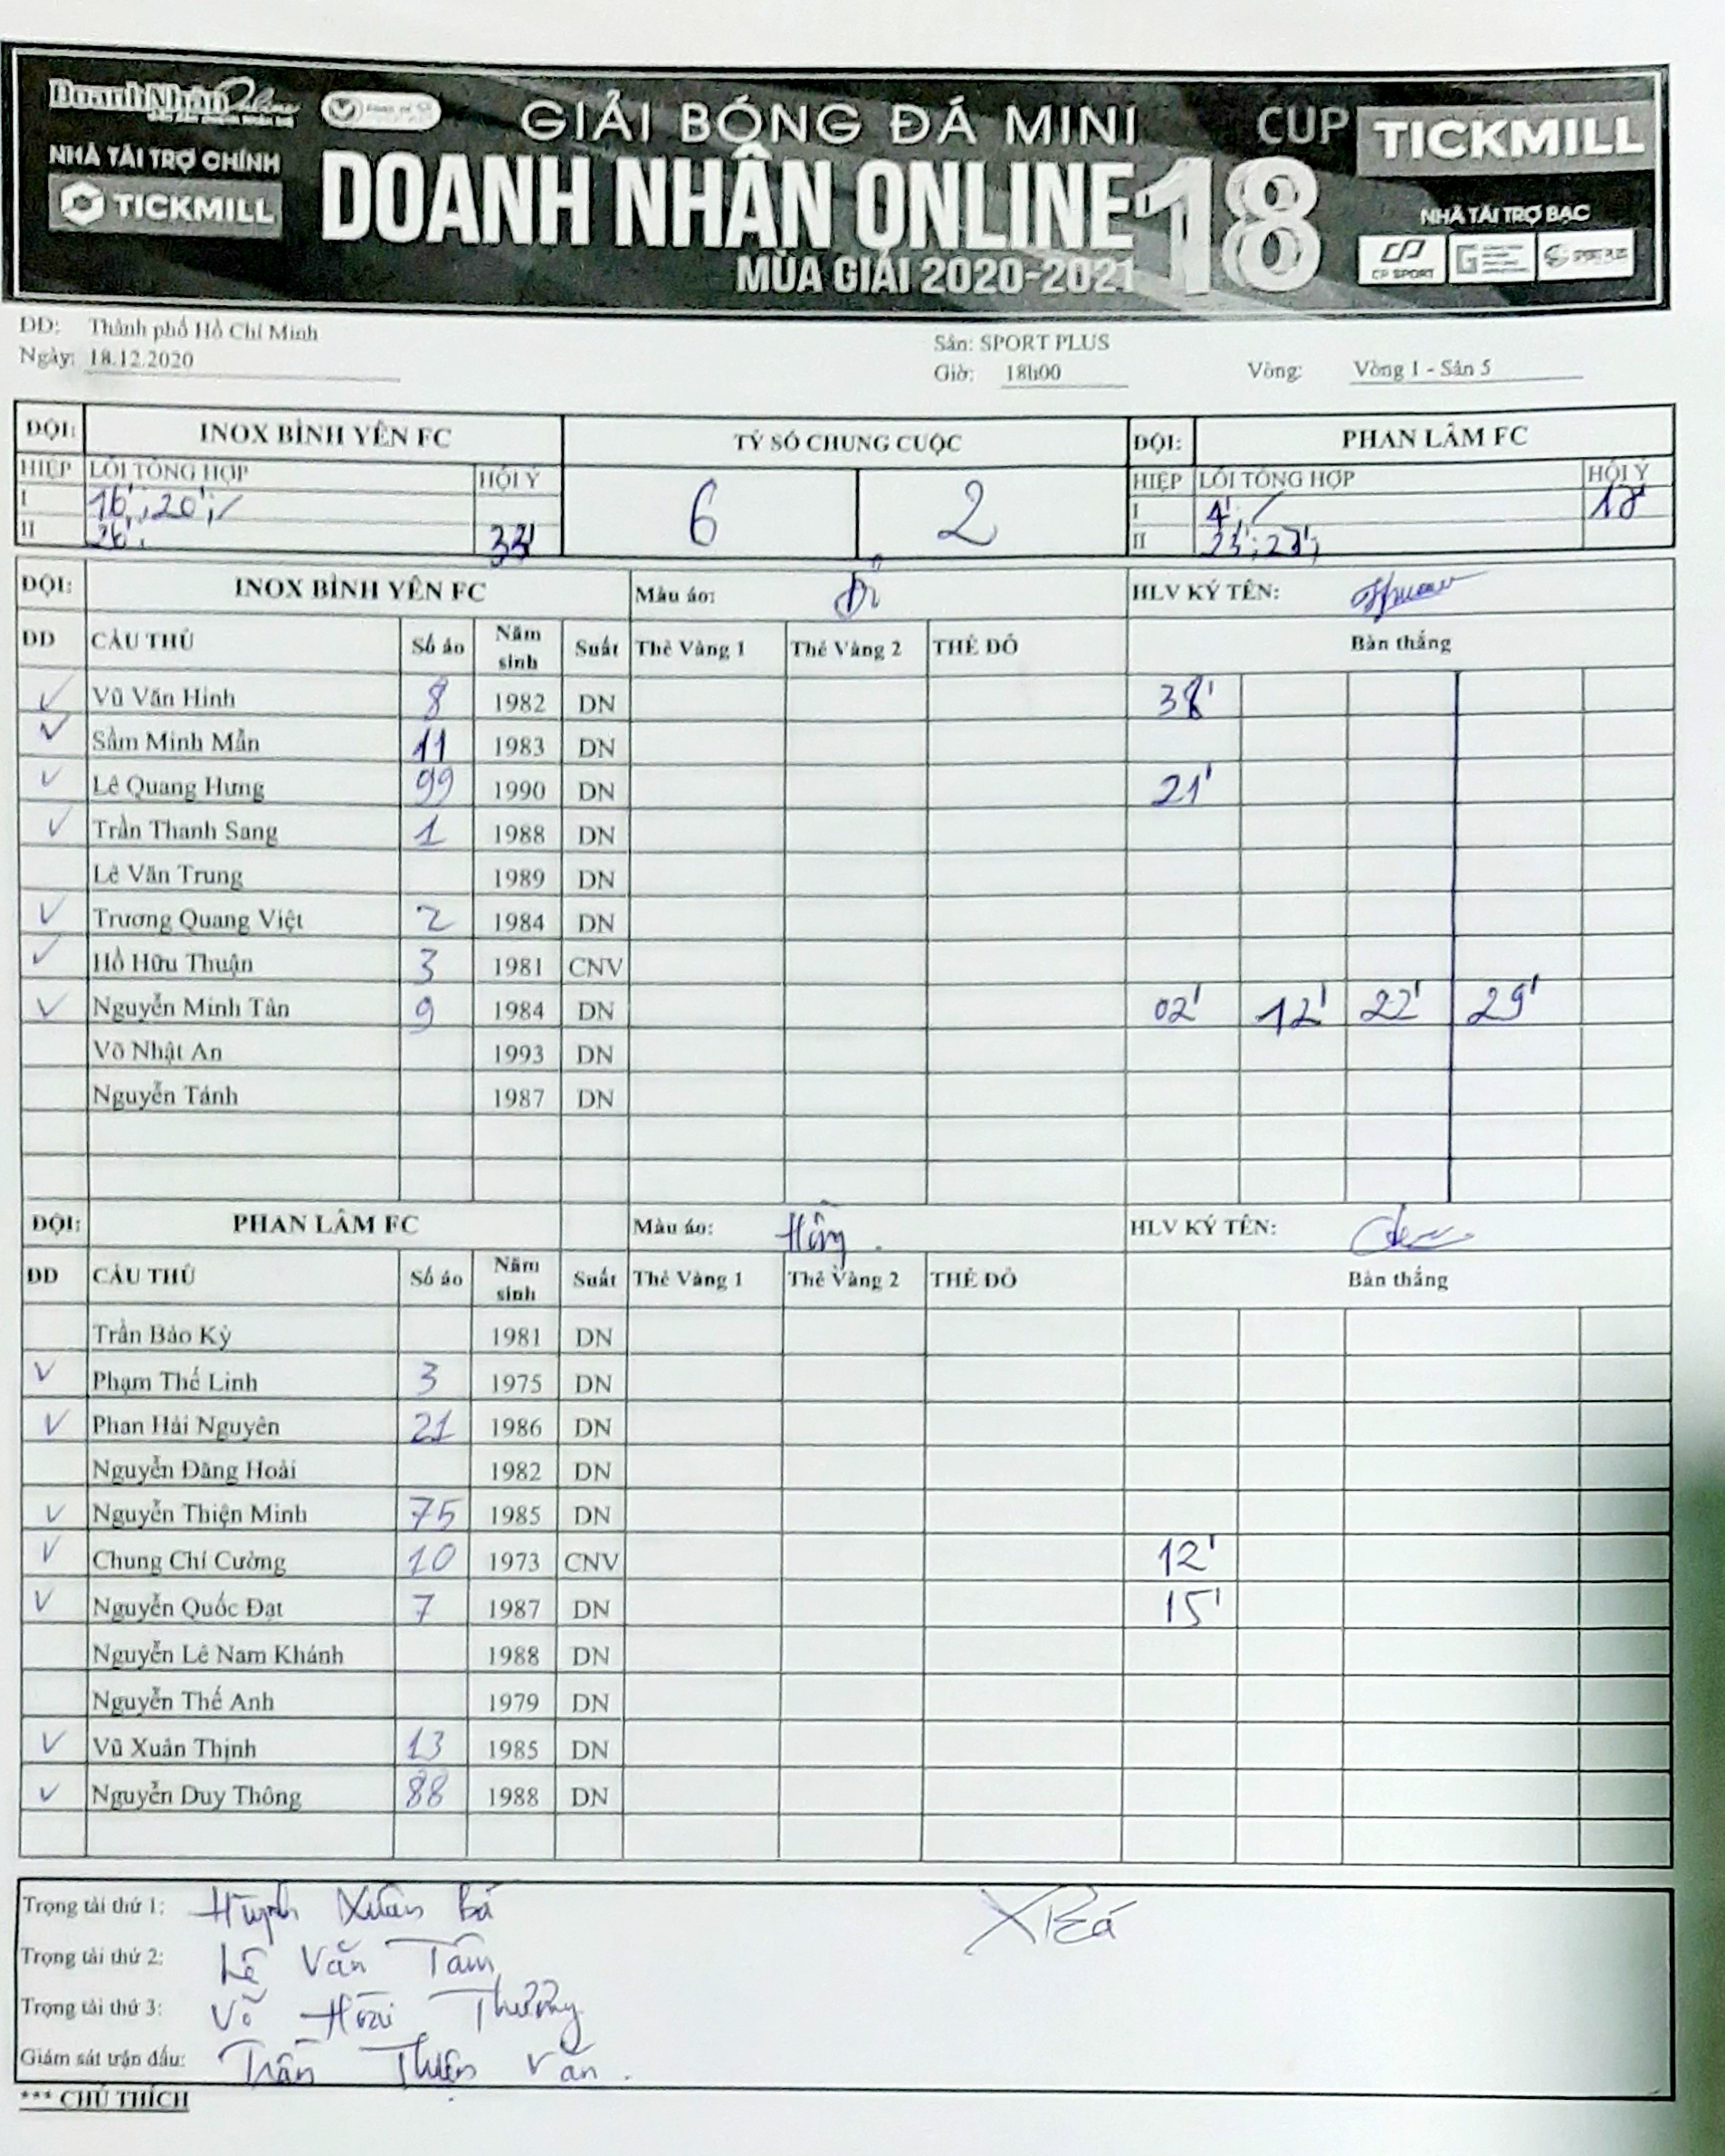 DoanhNhânOnline GIẢI BÓNG ĐÁ MINI CUP TICKMILL
NHÀ TÀI TRỢ CHÍNH
TICKMILL
DOANH NHÂN ONLINE 18
MÙA GIẢI 2020-2021
NHÀ TÀI TRỢ BẠC
CP SPORT SPORT PLUS
DD: Thành phố Hồ Chí Minh Sân: SPORT PLUS
Ngày: 18.12.2020 Giờ: 18h00 Vòng: Vòng 1 - Sân 5
ĐỘI: INOX BÌNH YÊN FC TỶ SỐ CHUNG CUỘC ĐỘI: PHAN LÂM FC
HIỆP LỖI TỔNG HỢP HỘI Ý 6 2 HIỆP LỖI TỔNG HỢP HỘI Ý
I 16'; 20'; / I 4'; / 18'
II 26'; 33' II 23'; 27';
ĐỘI: INOX BÌNH YÊN FC Màu áo: HLV KÝ TÊN:
DD CẦU THỦ Số áo Năm sinh Suất Thẻ Vàng 1 Thẻ Vàng 2 THẺ ĐỎ Bàn thắng
✓ Vũ Văn Hinh 8 1982 DN 38'
✓ Sầm Minh Mẫn 11 1983 DN
✓ Lê Quang Hưng 99 1990 DN 21'
✓ Trần Thanh Sang 1 1988 DN
Lê Văn Trung 1989 DN
✓ Trương Quang Việt 2 1984 DN
✓ Hồ Hữu Thuận 3 1981 CNV
✓ Nguyễn Minh Tân 9 1984 DN 02' 12' 22' 29'
Võ Nhật An 1993 DN
Nguyễn Tánh 1987 DN
ĐỘI: PHAN LÂM FC Màu áo: Hồng . HLV KÝ TÊN:
DD CẦU THỦ Số áo Năm sinh Suất Thẻ Vàng 1 Thẻ Vàng 2 THẺ ĐỎ Bàn thắng
Trần Bảo Kỳ 1981 DN
✓ Phạm Thế Linh 3 1975 DN
✓ Phan Hải Nguyên 21 1986 DN
Nguyễn Đăng Hoài 1982 DN
✓ Nguyễn Thiện Minh 75 1985 DN
✓ Chung Chí Cường 10 1973 CNV 12'
✓ Nguyễn Quốc Đạt 7 1987 DN 15'
Nguyễn Lê Nam Khánh 1988 DN
Nguyễn Thế Anh 1979 DN
✓ Vũ Xuân Thịnh 13 1985 DN
✓ Nguyễn Duy Thông 88 1988 DN
Trọng tài thứ 1: Huỳnh Xuân Bá XBá
Trọng tài thứ 2: Lê Văn Tâm
Trọng tài thứ 3: Võ Hoài Thương
Giám sát trận đấu: Trần Thiện Văn .
*** CHÚ THÍCH